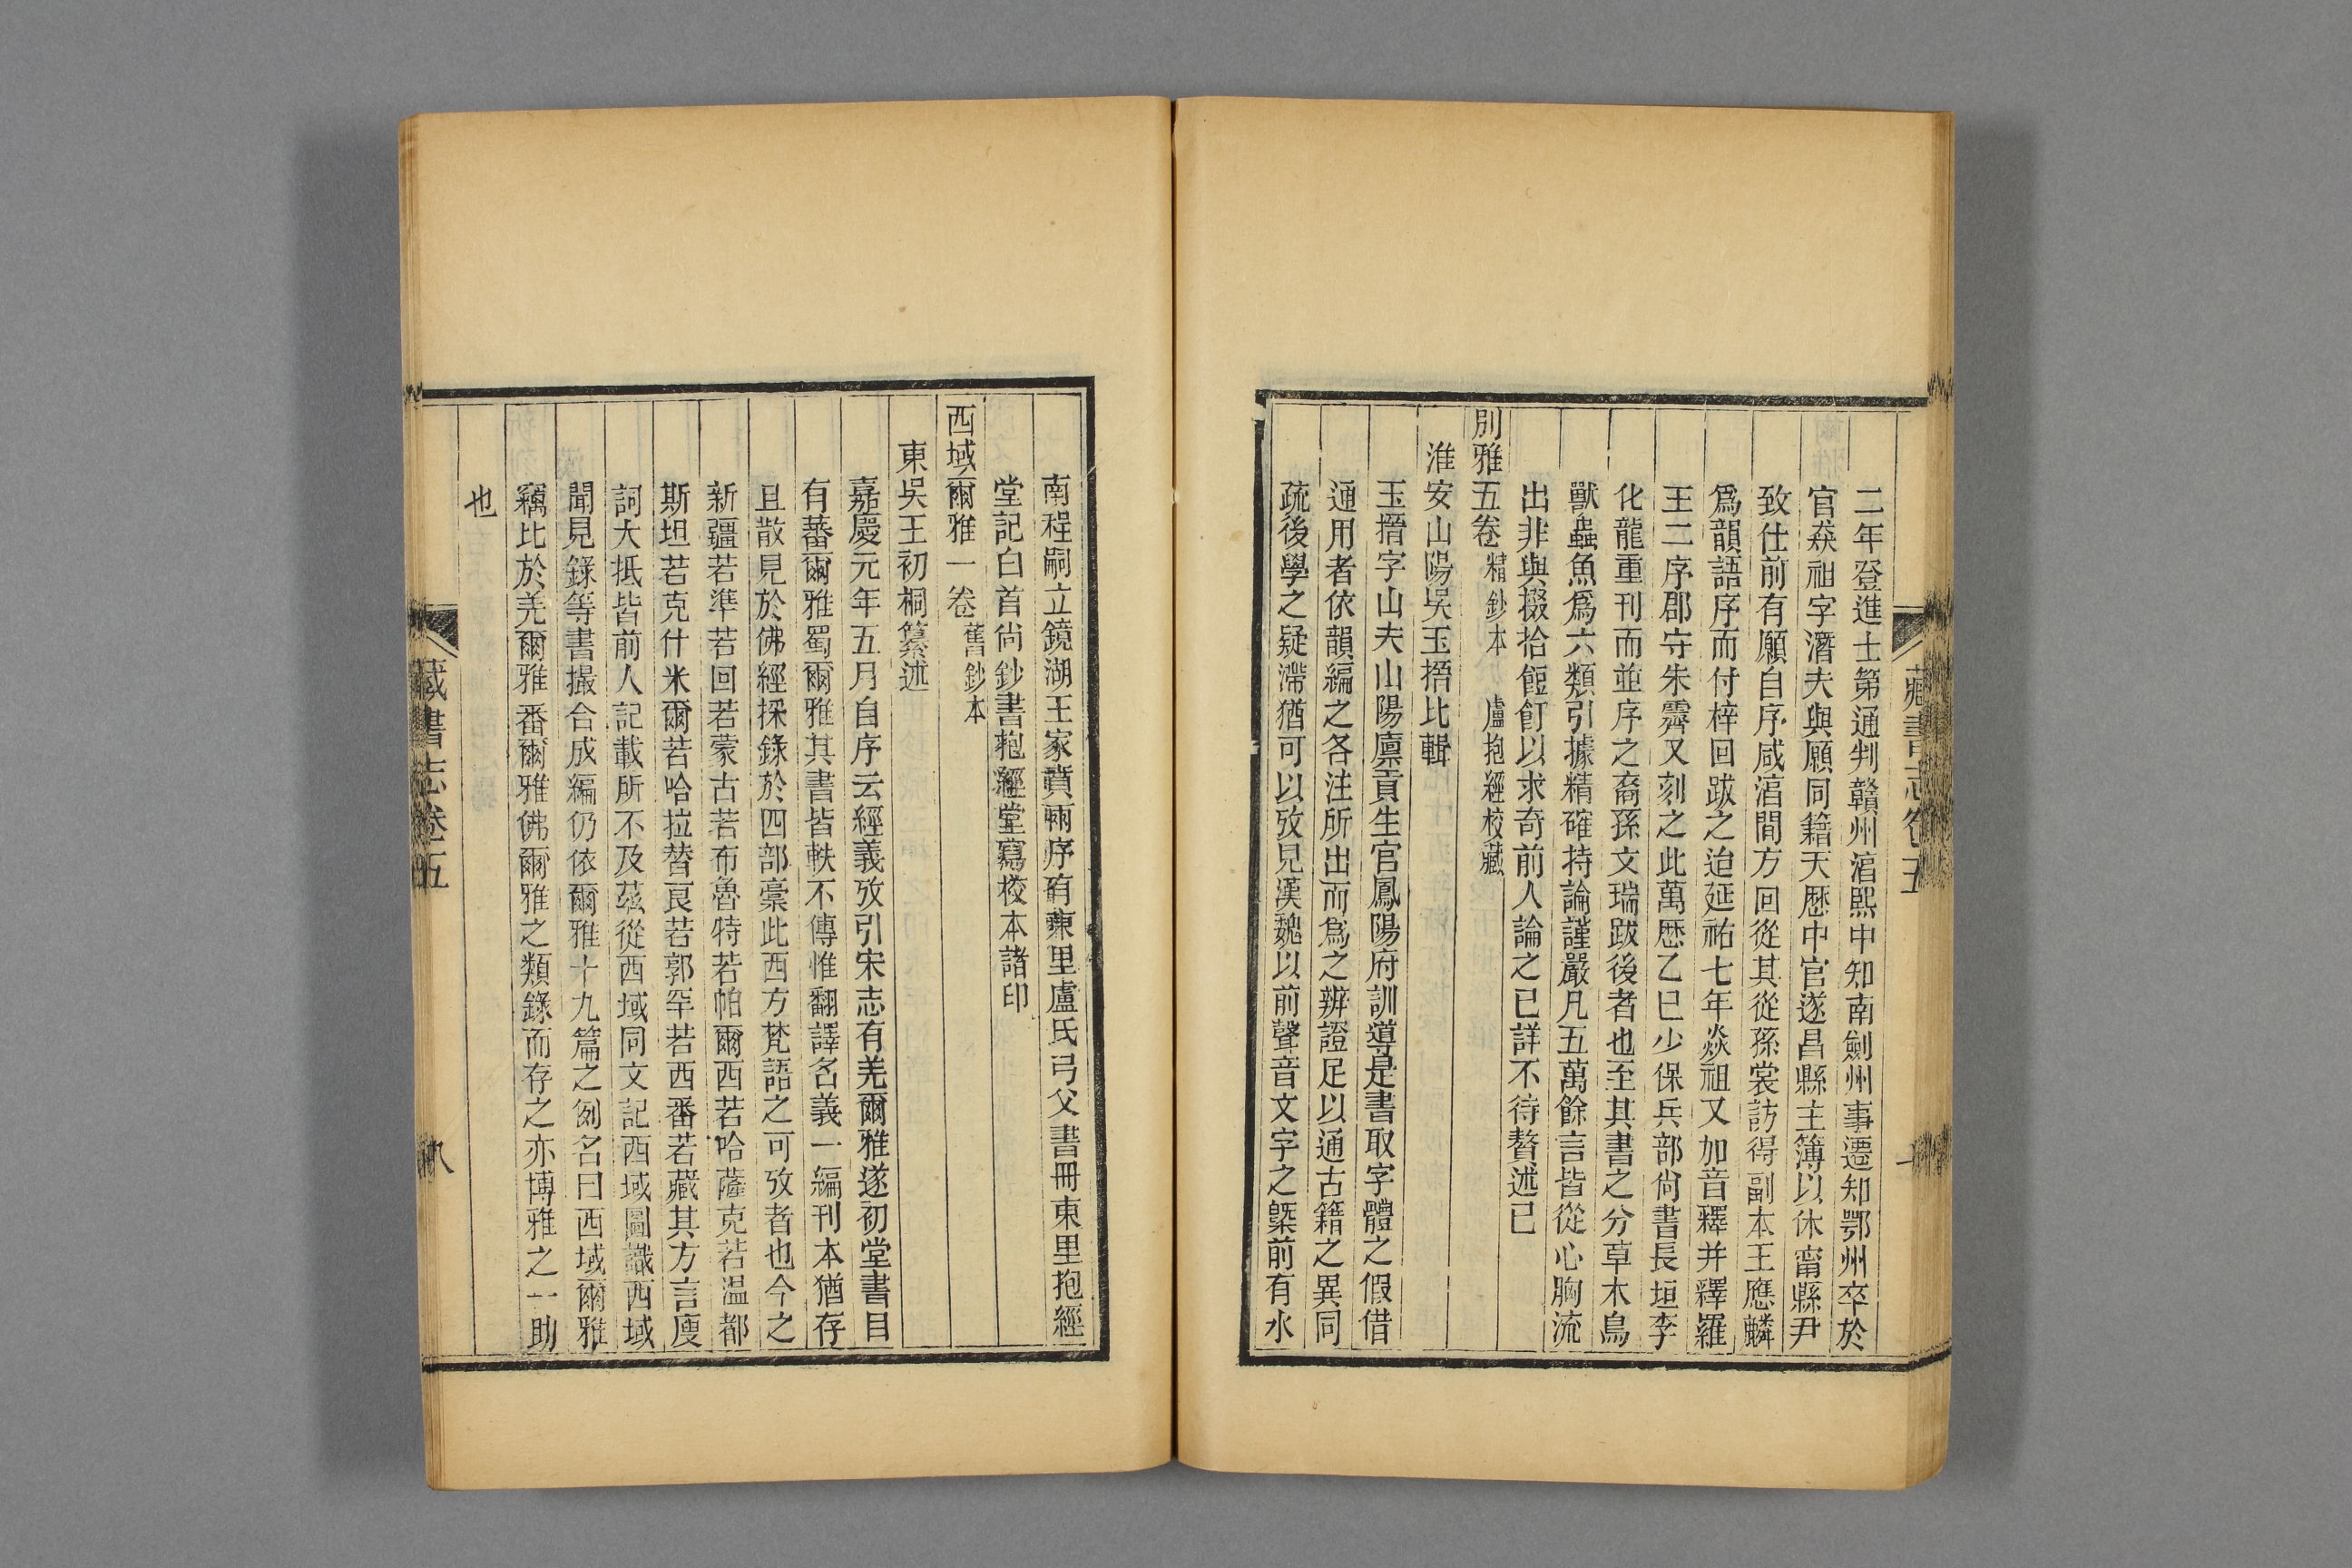 二年登進士第通判贛州㴆熙中知南劍州事遷知鄂州卒於
官焱祖字潛夫與願同籍天歷中官遂昌縣主簿以休甯縣尹
致仕前有願自序咸㴆間方回從其從孫裳訪得副本王應麟
爲韻語序而付梓回跋之迨延祐七年焱祖又加音釋并繹羅
王二序郡守朱霽又刻之此萬歷乙巳少保兵部尙書長垣李
化龍重刊而並序之裔孫文瑞跋後者也至其書之分草木鳥
獸蟲魚爲六類引據精確持論謹嚴凡五萬餘言皆從心胸流
出非與掇拾餖飣以求奇前人論之已詳不待贅述已
別雅五卷 精鈔本 盧抱經校藏
淮安山陽吳玉搢比輯
玉搢字山夫山陽廩貢生官鳳陽府訓導是書取字體之假借
通用者依韻編之各注所出而爲之辨證足以通古籍之異同
疏後學之疑滯猶可以攷見漢魏以前聲音文字之槩前有水
藏書志卷五
南程嗣立鏡湖王家賁兩序有東里盧氏弓父書冊東里抱經
堂記白首尙鈔書抱經堂寫校本諸印
西域爾雅一卷 舊鈔本
東吳王初桐纂述
嘉慶元年五月自序云經義攷引宋志有羌爾雅遂初堂書目
有蕃爾雅蜀爾雅其書皆軼不傳惟翻譯名義一編刊本猶存
且散見於佛經採錄於四部稾此西方梵語之可攷者也今之
新疆若準若回若蒙古若布魯特若帕爾西若哈薩克若温都
斯坦若克什米爾若哈拉替艮若郭罕若西番若藏其方言廋
詞大抵皆前人記載所不及茲從西域同文記西域圖識西域
聞見錄等書撮合成編仍依爾雅十九篇之例名曰西域爾雅
竊比於羌爾雅番爾雅佛爾雅之類錄而存之亦博雅之一助
也
藏書志卷五
八